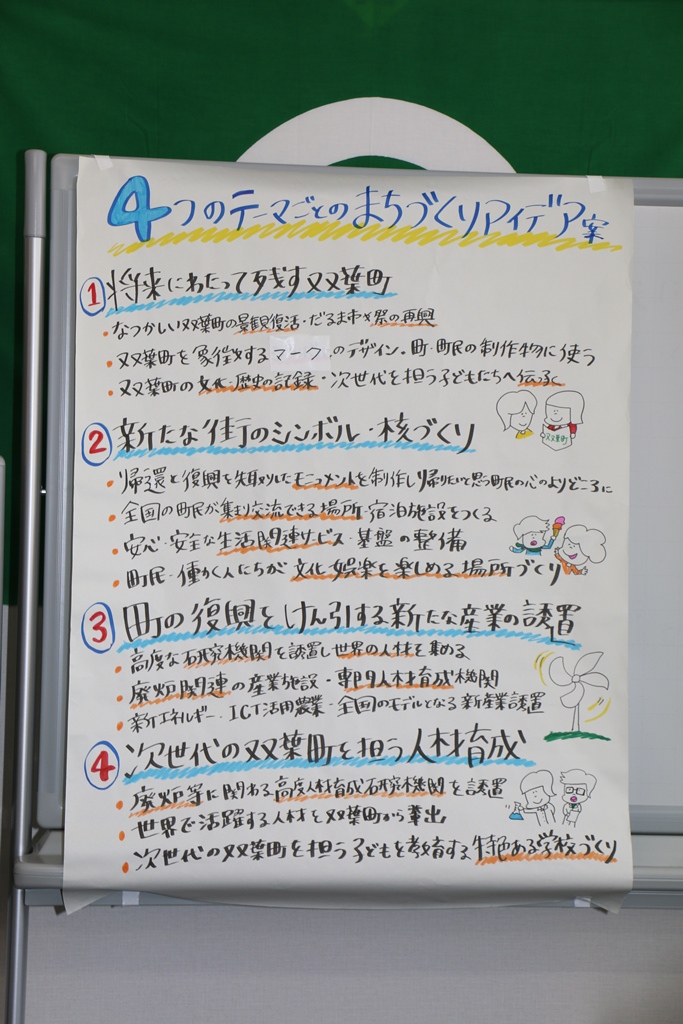 4つのテーマごとのまちづくりアイデア案
① 将来にわたって残す双葉町
・なつかしい双葉町の景観復活・だるま市や祭の再興
・双葉町を象徴するマークのデザイン・町・町民の制作物に使う
・双葉町の文化・歴史の記録・次世代を担う子どもたちへ伝承
双葉町
② 新たな街のシンボル・核づくり
・帰還と復興を先取りしたモニュメントを制作し帰りたいと思う町民の心のよりどころに
・全国の町民が集まり交流できる場所・宿泊施設をつくる
・安心・安全な生活関連サービス・基盤の整備
・町民・働く人たちが文化・娯楽を楽しめる場所づくり
③ 町の復興をけん引する新たな産業の誘置
・高度な研究機関を誘置し世界の人材を集める
・廃炉関連の産業施設・専門人材育成機関
・新エネルギー・ICT活用農業・全国のモデルとなる新産業誘置
④ 次世代の双葉町を担う人材育成
・廃炉等に関わる高度人材育成研究機関を誘置
・世界で活躍する人材を双葉町から輩出
・次世代の双葉町を担う子どもを教育する特色ある学校づくり